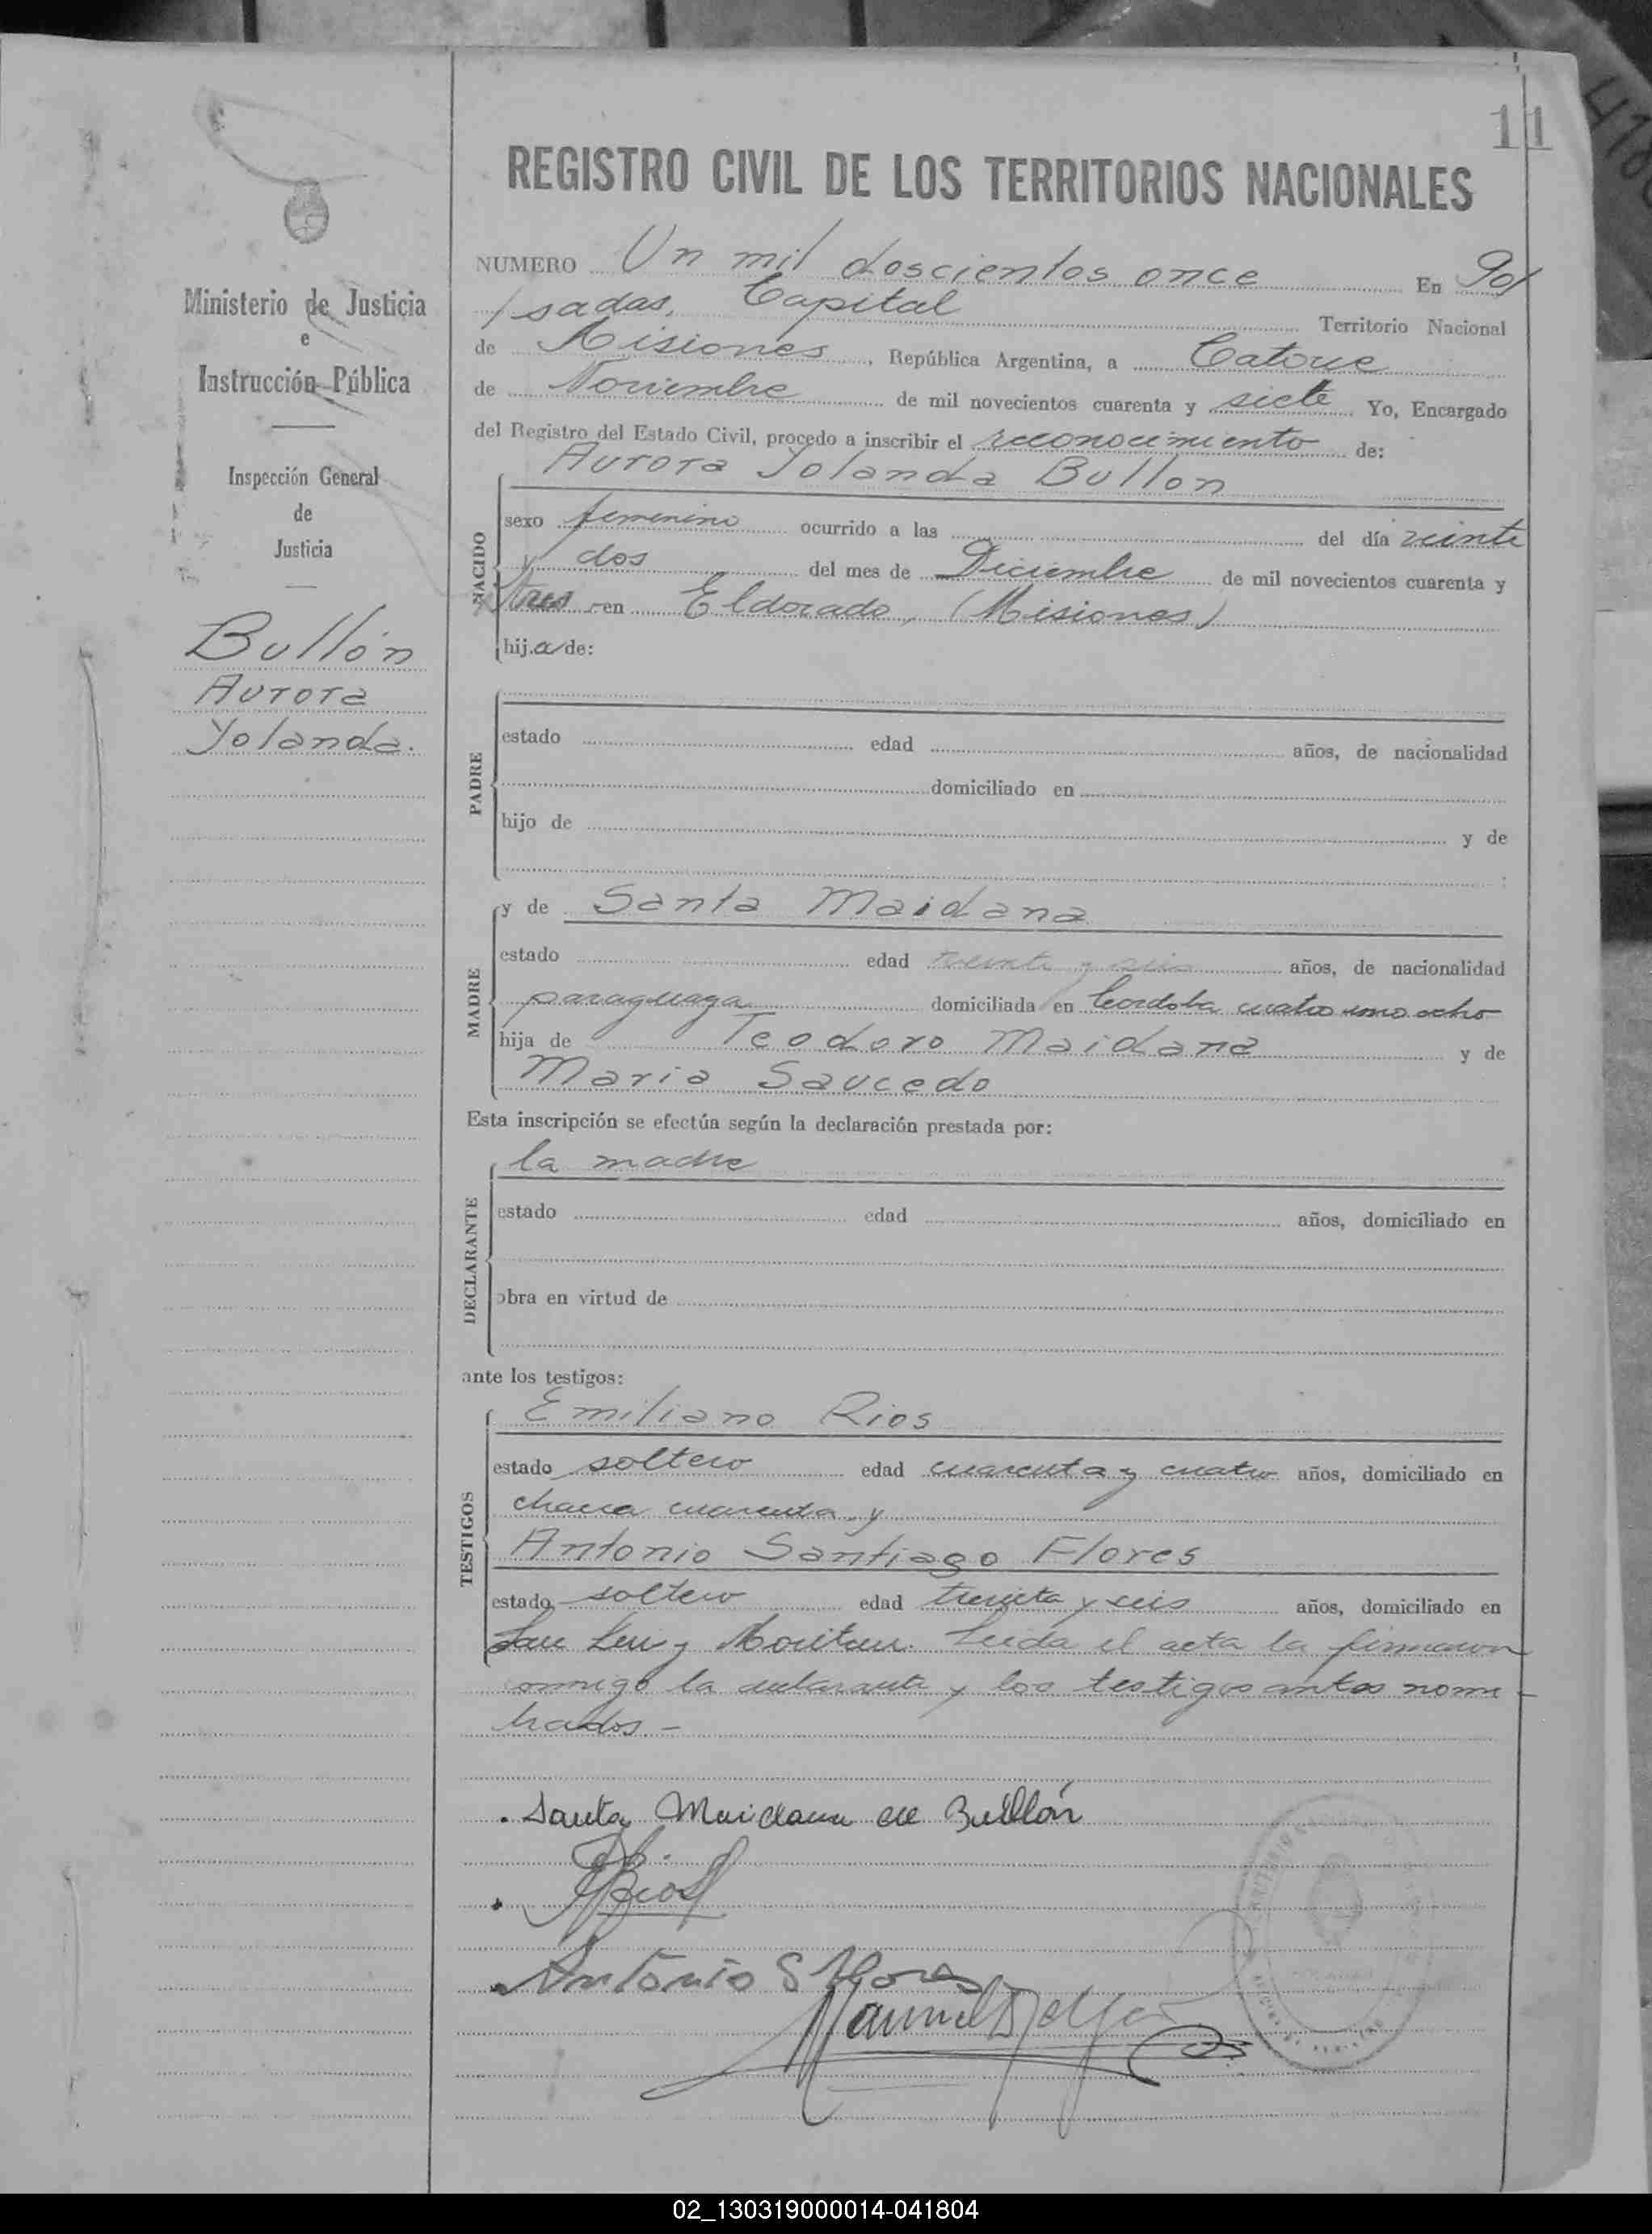 11
REGISTRO CIVIL DE LOS TERRITORIOS NACIONALES
NUMERO Un mil doscientos once En Po/
/sadas, Capital Territorio Nacional
de Misiones, República Argentina, a Catorce
de Noviembre de mil novecientos cuarenta y siete Yo, Encargado
del Registro del Estado Civil, procedo a inscribir el reconocimiento de:
Aurora Yolanda Bullon
NACIDO
sexo femenino ocurrido a las del día veinte
y dos del mes de Diciembre de mil novecientos cuarenta y
tres en Eldorado, (Misiones)
hij.a de:
PADRE
estado edad años, de nacionalidad
domiciliado en
hijo de y de
MADRE
y de Santa Maidana
estado edad y seis años, de nacionalidad
paraguaya domiciliada en Cordoba cuatro uno ocho
hija de Teodoro Maidana y de
Maria Saucedo
Esta inscripción se efectúa según la declaración prestada por:
la madre
DECLARANTE
estado edad años, domiciliado en
obra en virtud de
ante los testigos:
TESTIGOS
Emiliano Rios
estado soltero edad cuarenta y cuatro años, domiciliado en
chacra cuarenta y
Antonio Santiago Flores
estado soltero edad treinta y seis años, domiciliado en
San Luis y Leida el acta la firmaron
conmigo la declarante y los testigos antes nom-
brados -
Santa Maidana de Bullón
Rios
Antonio S Flores
Manuel
Ministerio de Justicia
e
Instrucción Pública
Inspección General
de
Justicia
Bullón
Aurora
Yolanda.
02_130319000014-041804